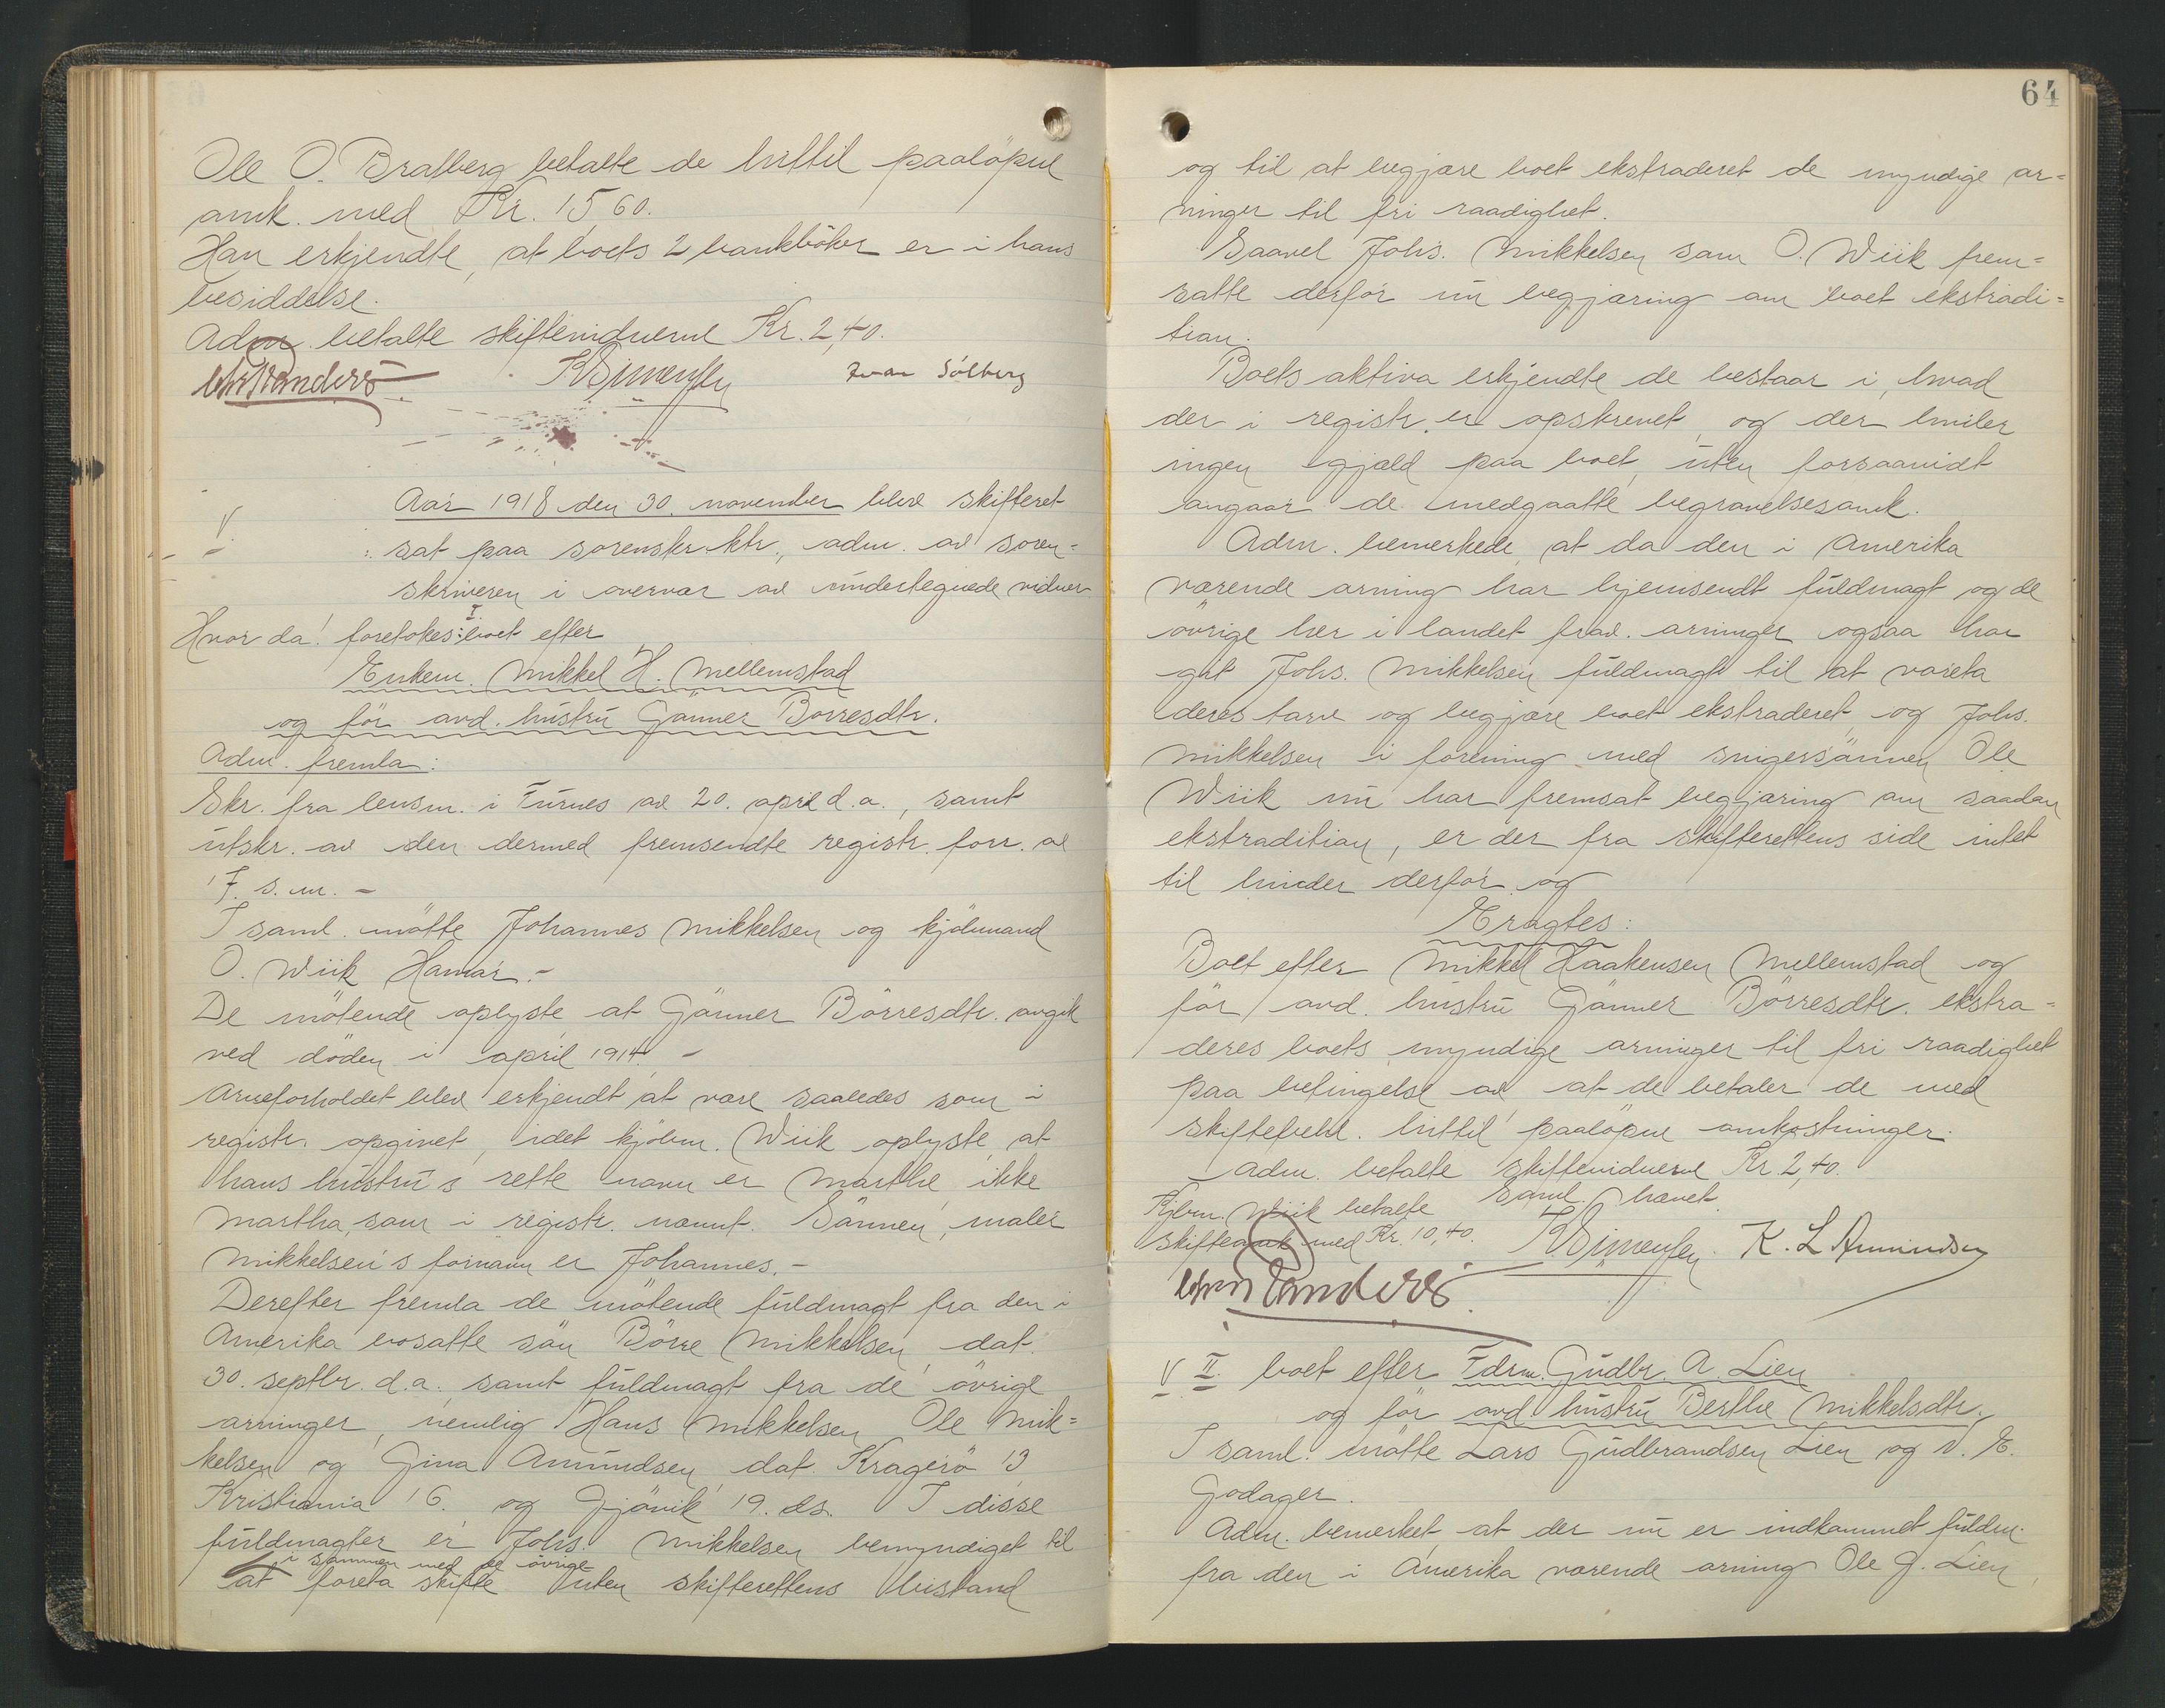 Ole O. Bratberg betalte de hittil paaløpne
omk. med Kr. 15,60.
Han erkjendte, at boets 2 bankbøker er i hans
besiddelse.
Adm. betalte skiftevidnerne Kr. 2,40.
KSimensen Ivar Sólberg
V. Aar 1918 den 30. november blev skifteret
sat paa sorenskr. ktr., adm. av soren=
skriveren i overvær av undertegnede vidner
Hvor da! foretokes: I boet efter
Enkem. Mikkel H. Mellemstad
og før avd. hustru Gønner Børresdtr.
Adm. fremla:
Skr. fra lensm. i Furnes av 20. april d.a., samt
utskr. av den dermed fremsendte registr. forr. av
17. s. m. –
I saml. møtte Johannes Mikkelsen og kjøbmand
O. Wiik Hamar. –
De møtende oplyste at Gønner Börresdtr. avgik
ved döden i april 1914. –
Arveforholdet blev erkjendt at være saaledes som i
registr. opgivet, idet kjøbm. Wiik oplyste, at
hans hustru's rette navn er Marthe, ikke
Martha, som i registr. nævnt. Sønnen, maler
Mikkelsen's fornavn er Johannes. –
Derefter fremla de møtende fuldmagt fra den i
Amerika bosatte søn Börre Mikkelsen, dat.
30. septbr. d.a. samt fuldmagt fra de øvrige
arvinger, nemlig Hans Mikkelsen Ole Mik=
kelsen og Gina Amundsen dat. Kragerö 13
Kristiania 16. og Gjøvik 19. ds. I disse
fuldmagter er Johs. Mikkelsen bemyndiget til
i sammen med de øvrige
at foreta skifte uten skifterettens bistand
64
og til at begjære boet ekstraderet de myndige ar=
vinger til fri raadighet.
Saavel Johs. Mikkelsen som O. Wiik frem=
satte derfor nu begjæring om boet ekstradi=
tion.
Boets aktiva erkjendte de bestaar i, hvad
der i registr. er opskrevet, og der hviler
ingen gjæld paa boet, uten forsaavidt
angaar de medgaatte begravelsesomk.
Adm. bemerkede, at da den i Amerika
værende arving har hjemsendt fuldmagt og de
övrige her i landet frav. arvinger ogsaa har
git Johs. Mikkelsen fuldmagt til at vareta
deres tarv og begjære boet ekstraderet, og Johs.
Mikkelsen i forening med svigersønnen Ole
Wiik nu har fremsat begjæring om saadan
ekstradition, er der fra skifterettens side intet
til hinder derfor og
Eragtes:
Boet efter Mikkel Haakensen Mellemstad og
før avd. hustru Gønner Börresdtr. ekstra=
deres boets myndige arvinger til fri raadighet
paa betingelse av at de betaler de med
skiftebeh. hittil paaløpne omkostninger.
Adm. betalte skiftevidnerne Kr 2,40.
Saml. hævet.
Kjbm. Wiik betalte
skifteomk med Kr. 10,40.
KSimensen. K. L Amundsen
V II. boet efter Fdrm. Gudbr. A. Lien
og før avd hustru Berthe Mikkelsdtr.
I saml. møtte Lars Gudbrandsen Lien og N. E.
Godager.
Adm. bemerket at der nu er indkommet fuldm.
fra den i Amerika værende arving Ole G. Lien,